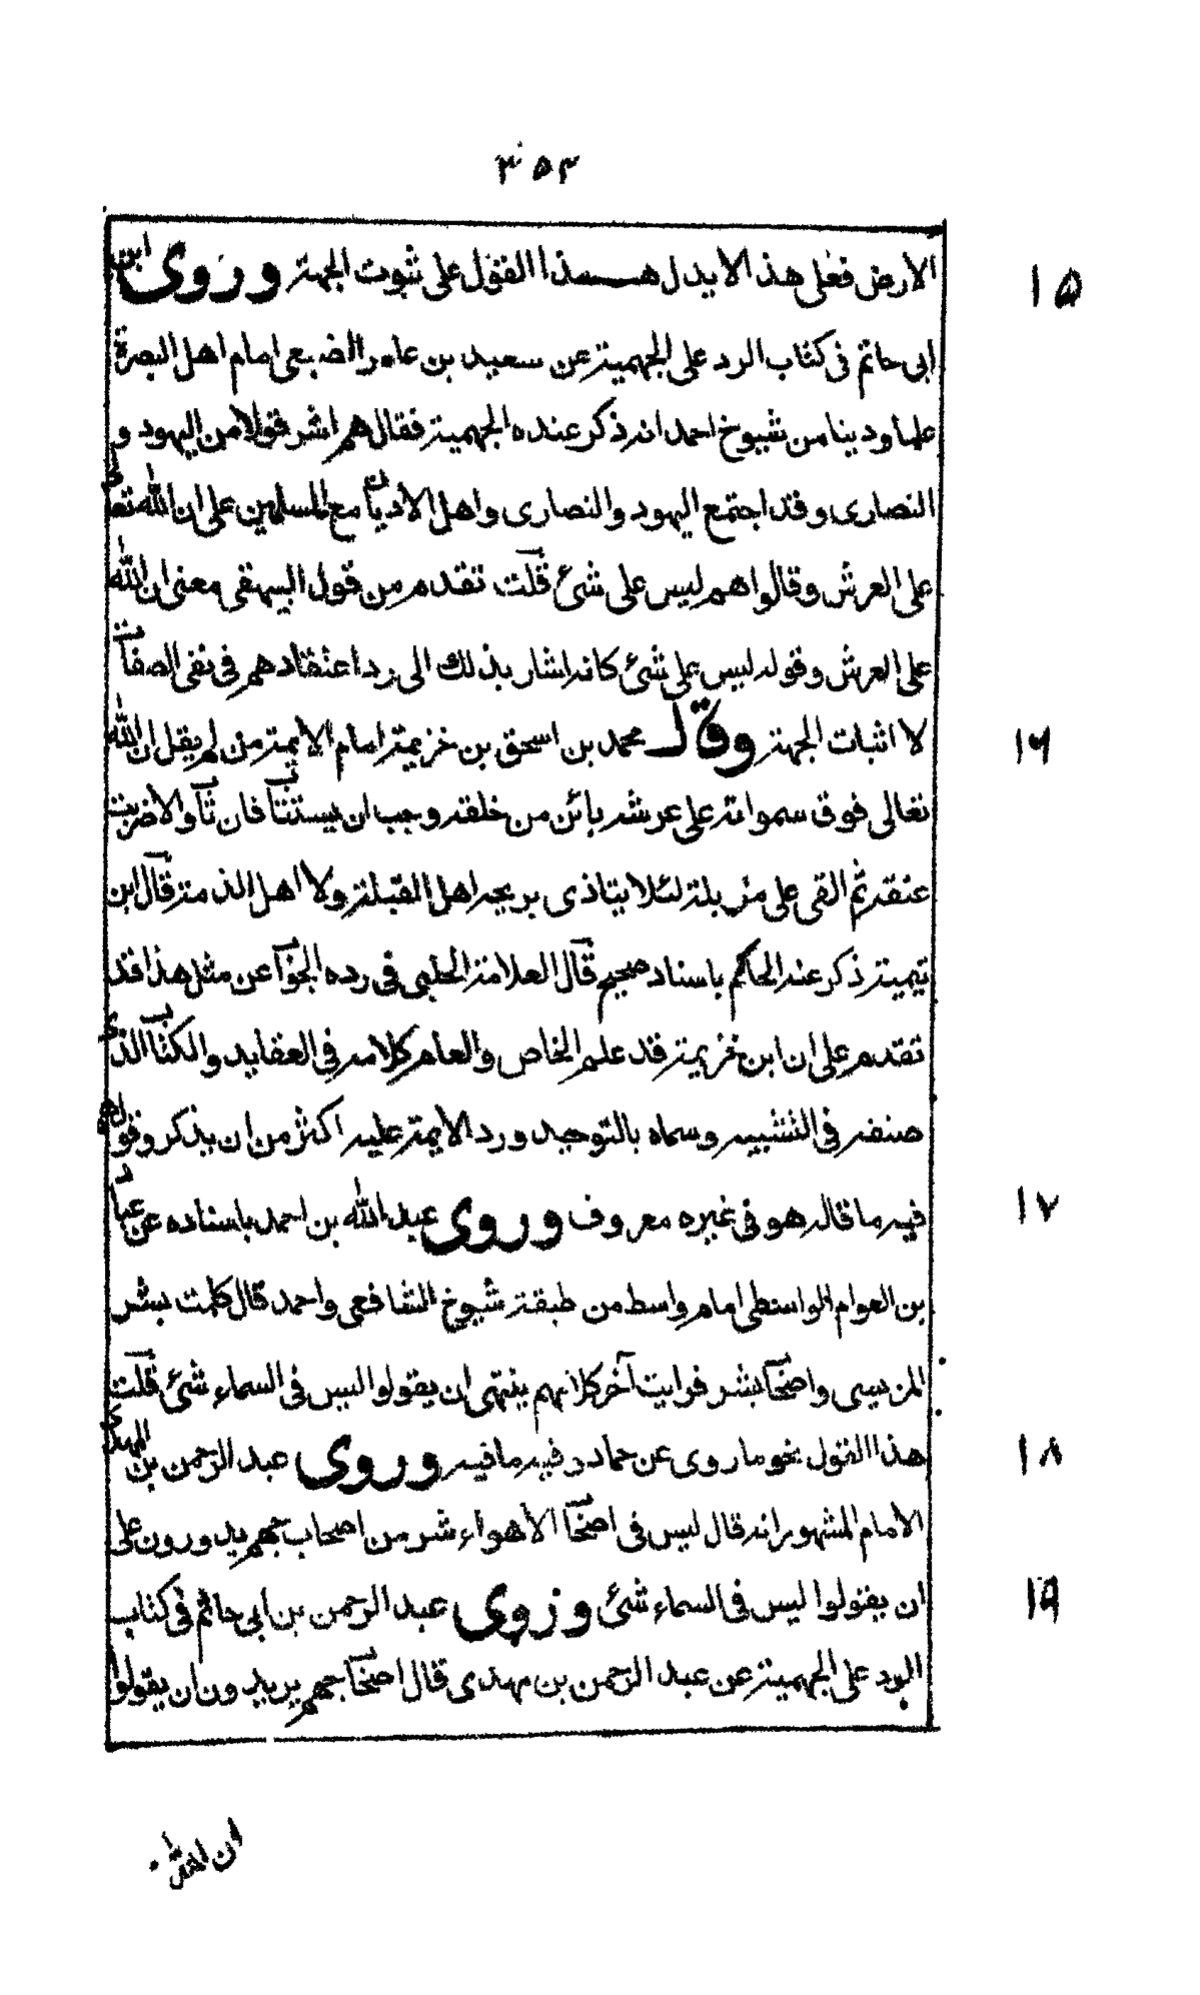 ٣٥٣
١٥
الارض فعلى هذا لا يدل هـــذا القول على ثبوت الجهة وروى ابن
ابى حاتم فى كتاب الرد على الجهمية عن سعيد بن عامر الضبعى امام اهل البصرة
علما ودينا من شيوخ احمد انه ذكر عنده الجهمية فقال هم اشر قولا من اليهود و
النصارى وقد اجتمع اليهود والنصارى واهل الاديان مع المسلمين على ان الله تعالى
على العرش وقالوا هم ليس على شئ قلت تقدم من قول البيهقى معنى ان الله
على العرش وقوله ليس على شئ كانه اشار بذلك الى رد اعتقادهم فى نفى الصفات
١٦
لا اثبات الجهة وقال محمد بن اسحق بن خزيمة امام الايمة من لم يقل ان الله
تعالى فوق سمواته على عرشه بائن من خلقه وجب ان يستتاب فان تاب والا ضربت
عنقه ثم القى على مزبلة لئلا يتاذى بريحه اهل القبلة ولا اهل الذمة قال ابن
تيمية ذكر عنه الحاكم باسناد صحيح قال العلامة الحلبى فى رده الجواب عن مثل هذا قد
تقدم على ان ابن خزيمة قد علم الخاص والعام كلامه فى العقايد والكتاب الذى
صنفه فى التشبيه وسماه بالتوحيد ورد الايمة عليه اكثر من ان يذكر وقولهم
١٧
فيه ما قاله هو فى غيره معروف وروى عبد الله بن احمد باسناده عن عباد
بن العوام الواسطى امام واسط من طبقة شيوخ الشافعى واحمد قال كلمت بشر
المريسى واصحاب بشر فرايت آخر كلامهم ينتهى ان يقولوا ليس فى السماء شئ قلت
١٨
هذا القول نحو ما روى عن حماد وفيه ما فيه وروى عبد الرحمن بن المهدى
الامام المشهور انه قال ليس فى اصحاب الاهواء شر من اصحاب جهم يدورون على
١٩
ان يقولوا ليس فى السماء شئ وروى عبد الرحمن بن ابى حاتم فى كتاب
الرد على الجهمية عن عبد الرحمن بن مهدى قال اصحاب جهم يريدون ان يقولوا